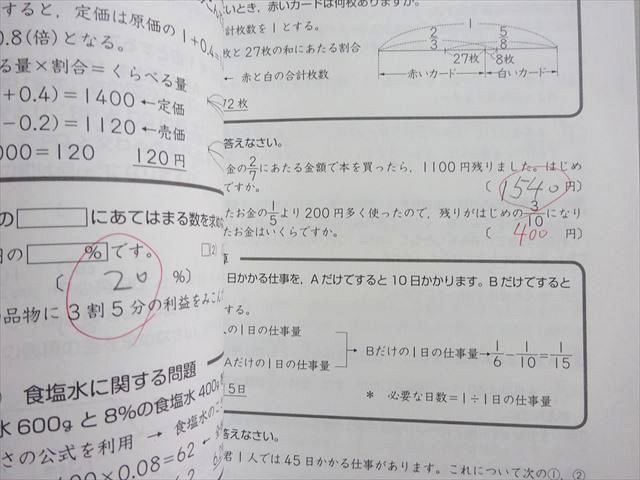 すると，定価は原価の 1+0.4=
0.8(倍)となる。
る量×割合＝くらべる量
+0.4)＝1400 ←定価
−0.2)＝1120 ←売価
000＝120 120円
の にあてはまる数を求め
日の %です。 □(2)
( 20 %)
の品物に3割5分の利益をみこん
食塩水に関する問題
水600gと8%の食塩水400g
さの公式を利用 → 食塩水の
×0.08＝62 ←
いとき，赤いカードは何枚ありますか。
計枚数を1とする。
枚と27枚の和にあたる割合
← 赤と白の合計枚数
72枚
1
2/3 5/8
27枚 8枚
赤いカード 白いカード
答えなさい。
金の2/7にあたる金額で本を買ったら，1100円残りました。はじめ
ですか。 ( 1540 円)
たお金の1/5より200円多く使ったので，残りがはじめの3/10になり
たお金はいくらですか。 ( 400 円)
算
日かかる仕事を，Aだけですると10日かかります。Bだけですると
する。
の1日の仕事量
Aだけの1日の仕事量
→ Bだけの1日の仕事量→1/6−1/10＝1/15
15日
* 必要な日数＝1÷1日の仕事量
答えなさい。
君1人では45日かかる仕事があります。これについて次の①，②